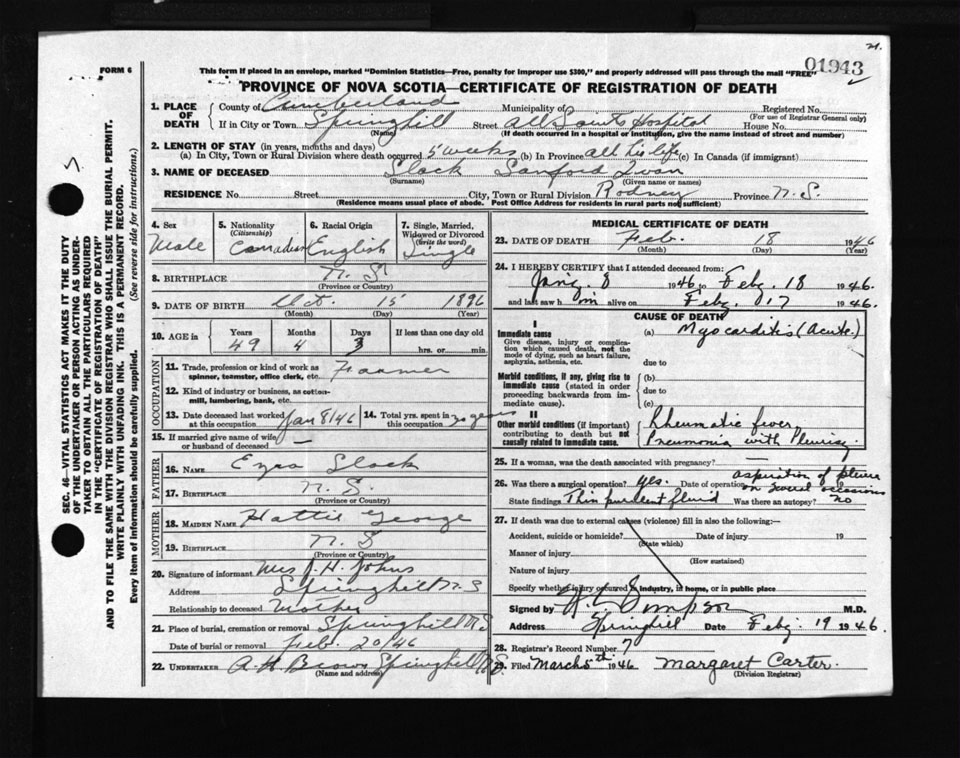 21.
FORM 6
01943
This form if placed in an envelope, marked "Dominion Statistics—Free, penalty for improper use $300," and properly addressed will pass through the mail "FREE"
PROVINCE OF NOVA SCOTIA—CERTIFICATE OF REGISTRATION OF DEATH
1. PLACE OF DEATH County of Cumberland Municipality of Registered No.
(For use of Registrar General only)
If in City or Town Springhill Street All Saints Hospital House No.
(Name) (If death occurred in a hospital or institution, give the name instead of street and number)
2. LENGTH OF STAY (in years, months and days)
(a) In City, Town or Rural Division where death occurred 5 weeks (b) In Province all his life (c) In Canada (if immigrant)
3. NAME OF DECEASED Slack Sanford Ivan
(Surname) (Given name or names)
RESIDENCE No. Street City, Town or Rural Division Rodney Province N.S.
(Residence means usual place of abode. Post Office Address for residents in rural parts not sufficient)
4. Sex Male
5. Nationality (Citizenship) Canadian
6. Racial Origin English
7. Single, Married, Widowed or Divorced (Write the word) Single
8. BIRTHPLACE N.S
(Province or Country)
9. DATE OF BIRTH Oct. 15 1896
(Month) (Day) (Year)
10. AGE in Years 49 Months 4 Days 3 If less than one day old hrs. or min.
OCCUPATION
11. Trade, profession or kind of work as spinner, teamster, office clerk, etc. Faarmer
12. Kind of industry or business, as cotton-mill, lumbering, bank, etc.
13. Date deceased last worked at this occupation Jan 8/46 14. Total yrs. spent in this occupation 30 years
15. If married give name of wife or husband of deceased —
FATHER
16. NAME Ezra Slack
17. BIRTHPLACE N.S.
(Province or Country)
MOTHER
18. MAIDEN NAME Hattie George
19. BIRTHPLACE N.S
(Province or Country)
20. Signature of informant Mrs J. H. Johns
Address Springhill N.S
Relationship to deceased Mother
21. Place of burial, cremation or removal Springhill N.S
Date of burial or removal Feb. 20/46
22. UNDERTAKER A.H. Brown Springhill N.S.
(Name and address)
MEDICAL CERTIFICATE OF DEATH
23. DATE OF DEATH Feb. 18 1946
(Month) (Day) (Year)
24. I HEREBY CERTIFY that I attended deceased from:
Jan'y. 8 1946 to Feby. 18 1946.
and last saw him alive on Feby. 17 1946.
CAUSE OF DEATH
I
Immediate cause (a) Myocarditis (Acute.)
Give disease, injury or complication which caused death, not the mode of dying, such as heart failure, asphyxia, asthenia, etc.
due to
Morbid conditions, if any, giving rise to immediate cause (stated in order proceeding backwards from immediate cause).
(b)
due to
(c)
II
Other morbid conditions (if important) contributing to death but not causally related to immediate cause.
Rheumatic fever,
Pneumonia with Pleurisy.
25. If a woman, was the death associated with pregnancy? —
26. Was there a surgical operation? Yes. Date of operation aspiration of pleura on several occasions
State findings Thin purulent fluid Was there an autopsy? no
27. If death was due to external causes (violence) fill in also the following:—
Accident, suicide or homicide? Date of injury 19
(State which)
Manner of injury
(How sustained)
Nature of injury
Specify whether injury occurred in industry, in home, or in public place
Signed by Simpson M.D.
Address Springhill Date Feby. 19 1946.
28. Registrar's Record Number 7
29. Filed March 5th 1946 Margaret Carter.
(Division Registrar)
SEC. 46—VITAL STATISTICS ACT MAKES IT THE DUTY
OF THE UNDERTAKER OR PERSON ACTING AS UNDER-
TAKER TO OBTAIN ALL THE PARTICULARS REQUIRED
IN THE "CERTIFICATE OF REGISTRATION OF DEATH"
AND TO FILE THE SAME WITH THE DIVISION REGISTRAR WHO SHALL ISSUE THE BURIAL PERMIT.
WRITE PLAINLY WITH UNFADING INK. THIS IS A PERMANENT RECORD.
Every item of information should be carefully supplied. (See reverse side for instructions.)